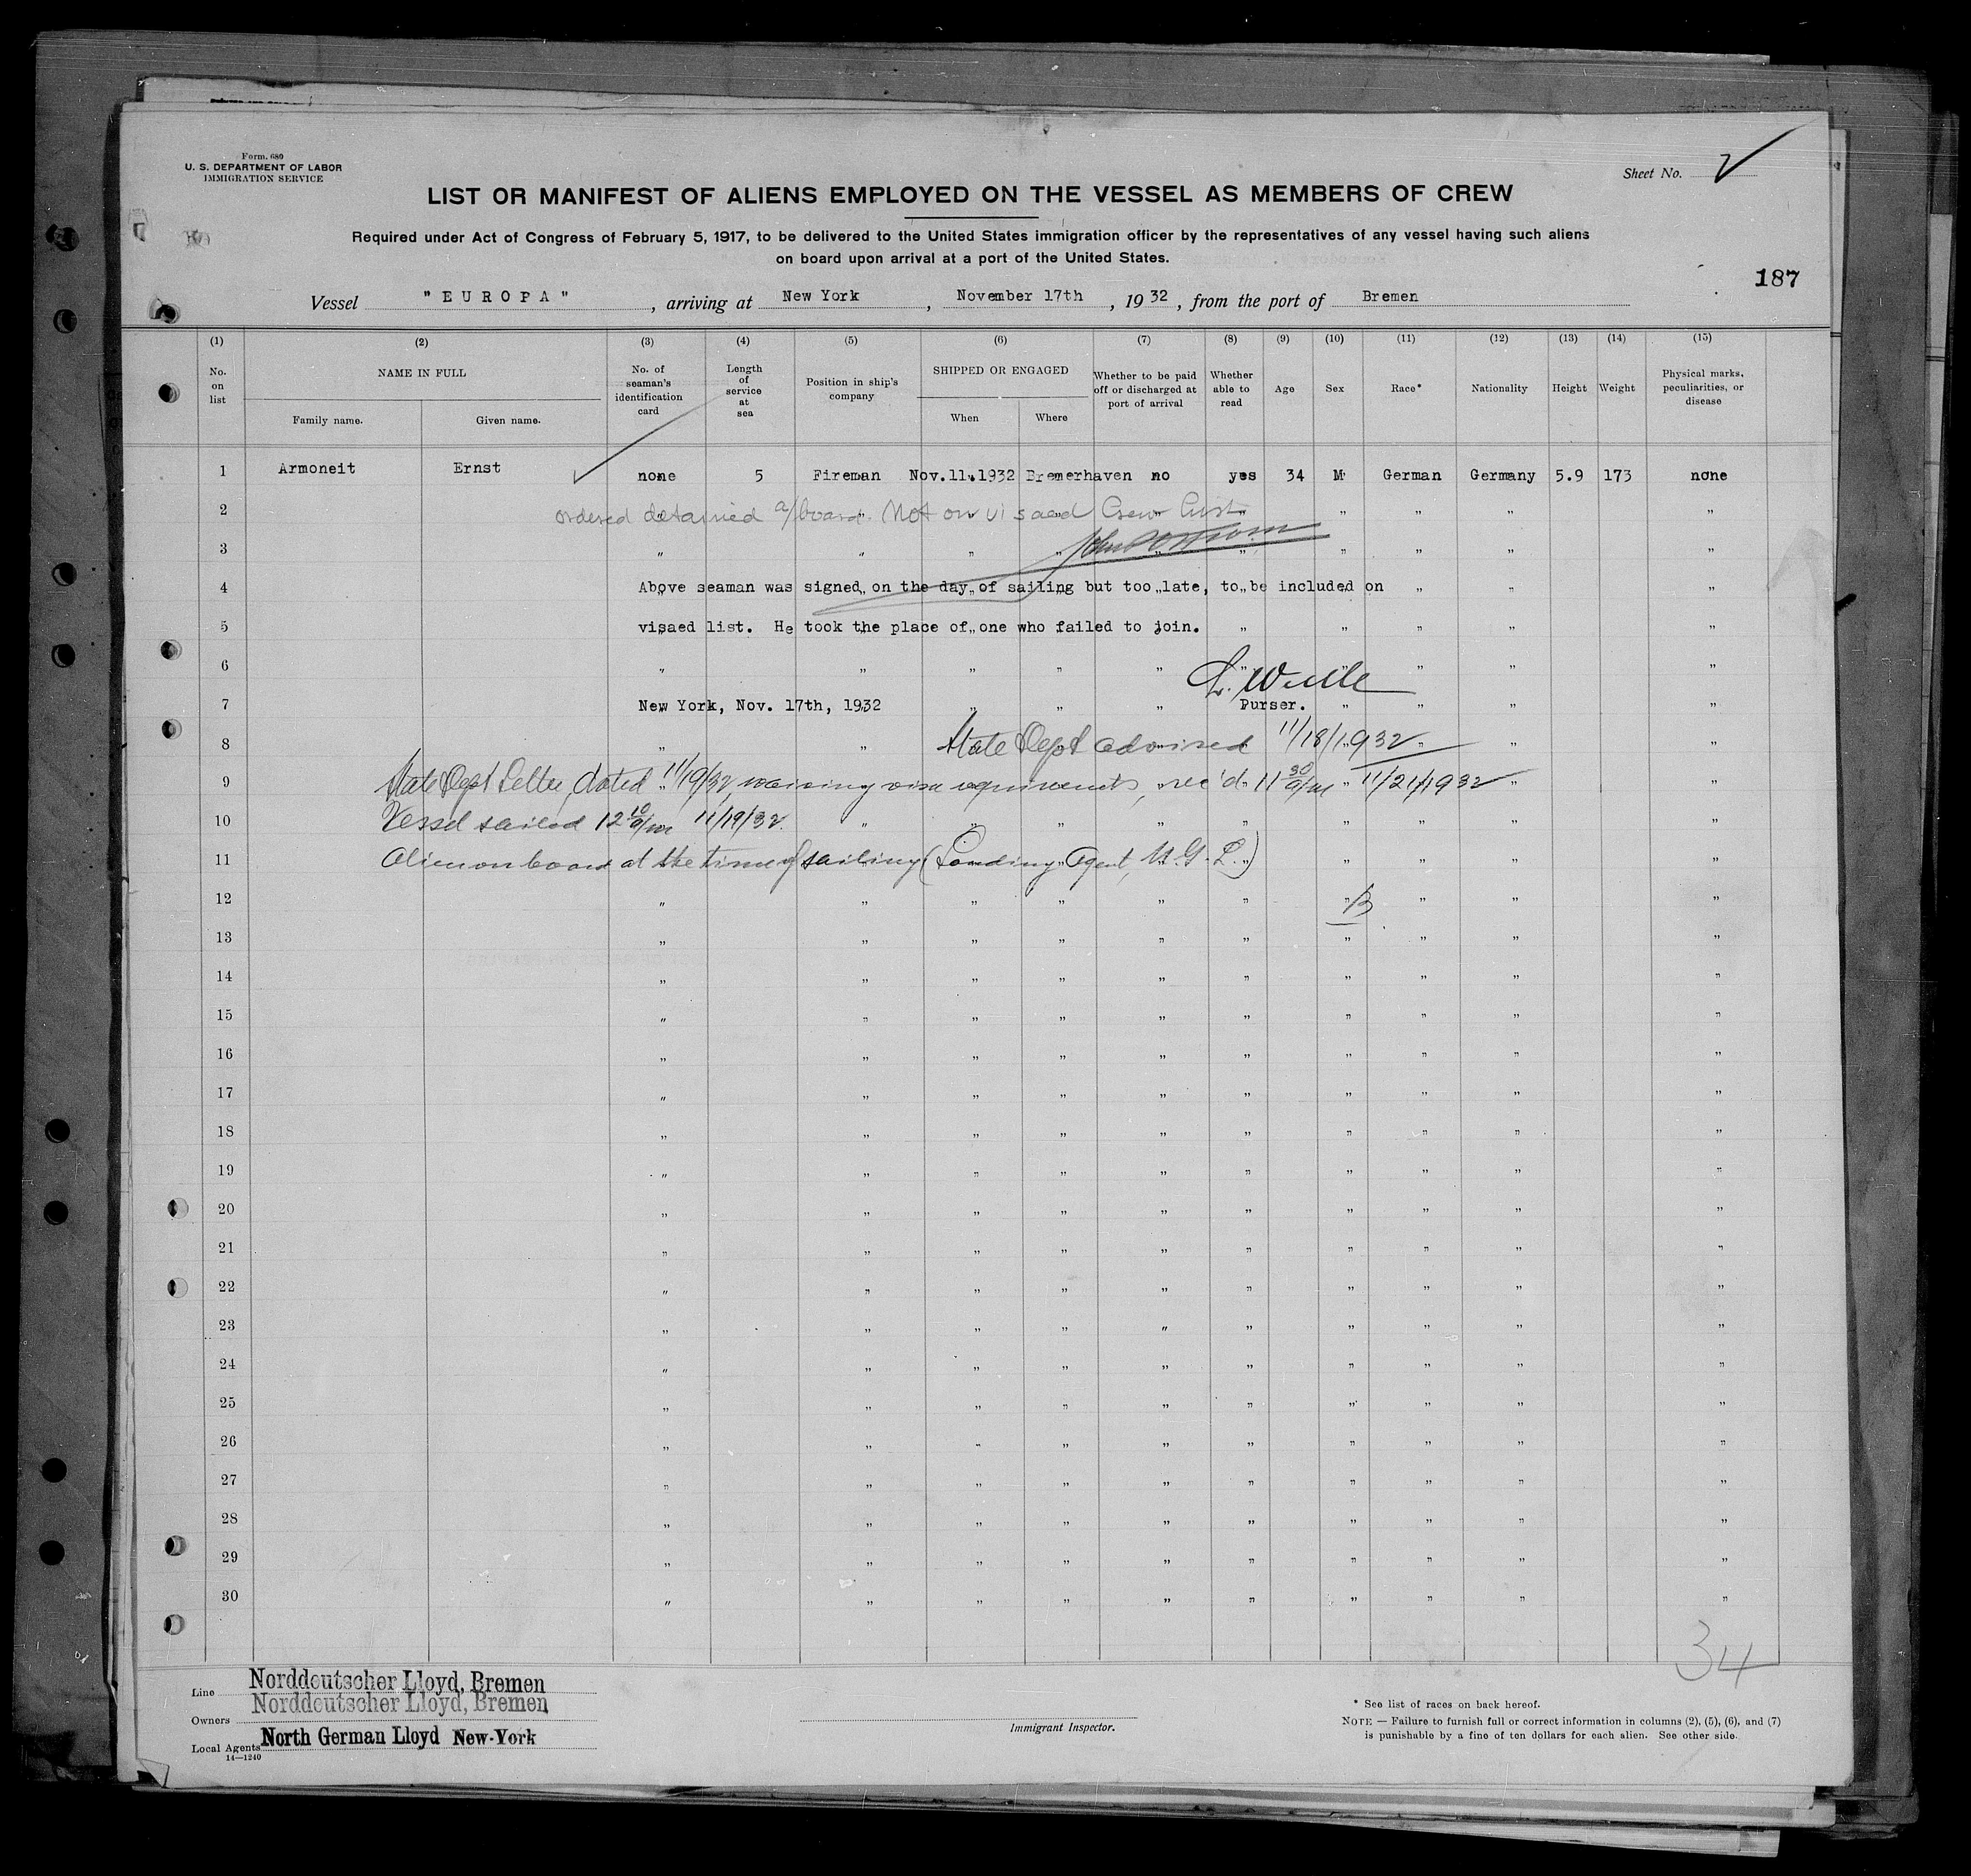 Form. 680
U. S. DEPARTMENT OF LABOR
IMMIGRATION SERVICE
Sheet No.
LIST OR MANIFEST OF ALIENS EMPLOYED ON THE VESSEL AS MEMBERS OF CREW
Required under Act of Congress of February 5, 1917, to be delivered to the United States immigration officer by the representatives of any vessel having such aliens
on board upon arrival at a port of the United States.
187
Vessel "EUROPA", arriving at New York, November 17th, 1932, from the port of Bremen
(1) (2) (3) (4) (5) (6) (7) (8) (9) (10) (11) (12) (13) (14) (15)
No. on list NAME IN FULL Family name. Given name. No. of seaman's identification card Length of service at sea Position in ship's company SHIPPED OR ENGAGED When Where Whether to be paid off or discharged at port of arrival Whether able to read Age Sex Race* Nationality Height Weight Physical marks, peculiarities, or disease
1 Armoneit Ernst none 5 Fireman Nov.11.1932 Bremerhaven no yes 34 M German Germany 5.9 173 none
2 ordered detained a/board. Not on visaed Crew List " " " "
3 " " " " " " " " " "
4 Above seaman was signed on the day of sailing but too late, to be included on " " "
5 visaed list. He took the place of one who failed to join. " " " " "
6 " " " " " " " " "
L. Wulle
7 New York, Nov. 17th, 1932 " " " Purser. " " " "
8 " " State Dept advised 11/18/1932 " "
9 State Dept Letter dated 11/19/32, waiving visa requirements, rec'd 11 30 a/m 11/21/1932 " "
10 Vessel sailed 12 10 a/m 11/19/32. " " " " " " " " "
11 Alien on board at the time of sailing (Landing Agent, N. G. L.) " " " "
12 " " " " " " B " " "
13 " " " " " " " " " "
14 " " " " " " " " " "
15 " " " " " " " " " "
16 " " " " " " " " " "
17 " " " " " " " " " "
18 " " " " " " " " " "
19 " " " " " " " " " "
20 " " " " " " " " " "
21 " " " " " " " " " "
22 " " " " " " " " " "
23 " " " " " " " " " "
24 " " " " " " " " " "
25 " " " " " " " " " "
26 " " " " " " " " " "
27 " " " " " " " " " "
28 " " " " " " " " " "
29 " " " " " " " " " "
30 " " " " " " " " " "
34
Line Norddeutscher Lloyd, Bremen
Owners Norddeutscher Lloyd, Bremen
Local Agents North German Lloyd New-York
14—1240
Immigrant Inspector.
* See list of races on back hereof.
NOTE — Failure to furnish full or correct information in columns (2), (5), (6), and (7)
is punishable by a fine of ten dollars for each alien. See other side.